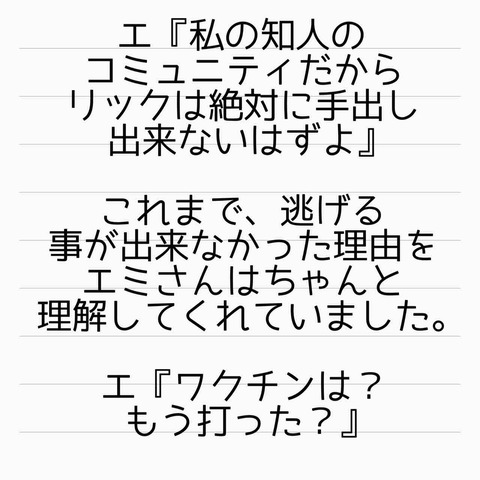 エ『私の知人の
コミュニティだから
リックは絶対に手出し
出来ないはずよ』
これまで、逃げる
事が出来なかった理由を
エミさんはちゃんと
理解してくれていました。
エ『ワクチンは？
もう打った？』